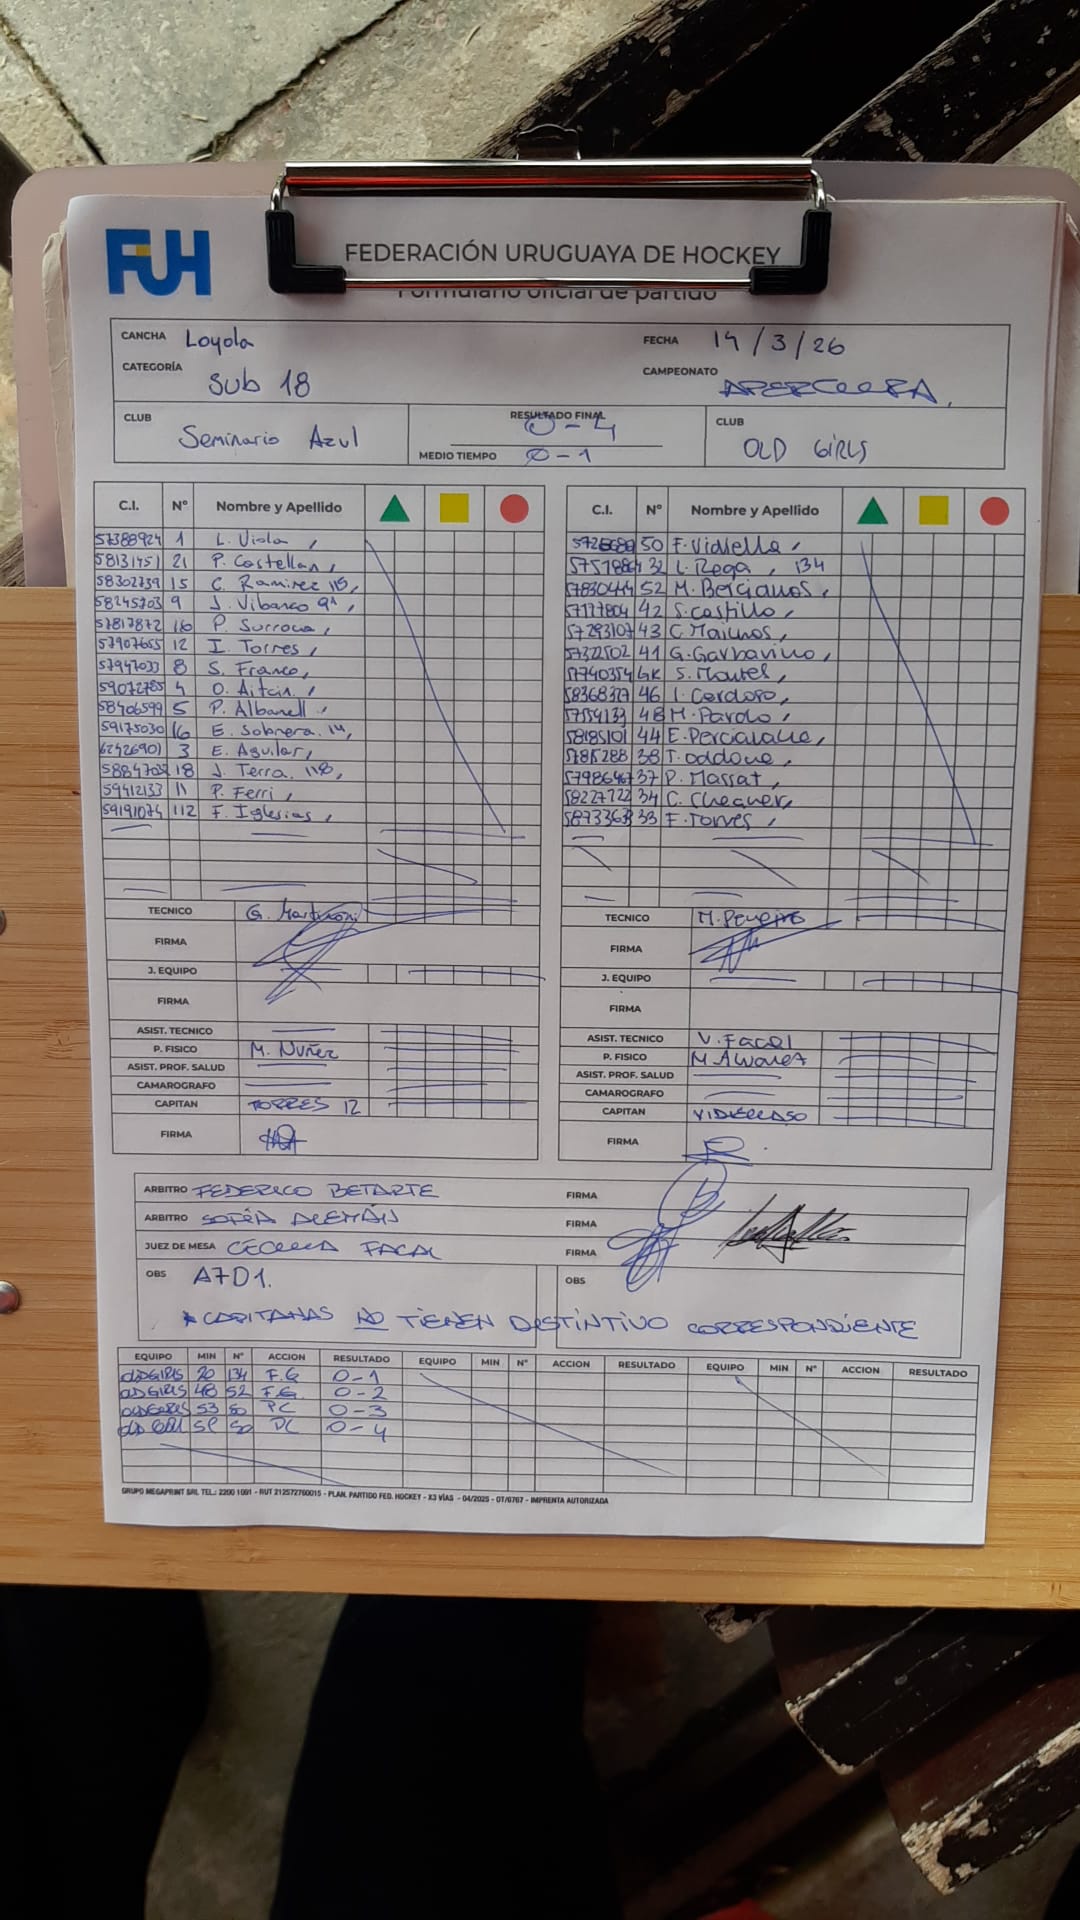 FUH
FEDERACIÓN URUGUAYA DE HOCKEY
Formulario oficial de partido
CANCHA Loyola FECHA 14/3/26
CATEGORÍA Sub 18 CAMPEONATO APERTURA
CLUB Seminario Azul RESULTADO FINAL 0-4 CLUB OLD GIRLS
MEDIO TIEMPO 0-1
C.I. Nº Nombre y Apellido
57388924 1 L. Viola,
58131451 21 P. Castellan,
58302739 15 C. Ramirez 115,
58245703 9 J. Vibarco 91,
57817872 P. Surroca,
57907655 12 I. Torres,
57947033 8 S. Franco,
59072785 4 O. Aitcin,
58406599 5 P. Albanell,
59175030 16 E. Sobrera. 14,
62426901 3 E. Aguilar,
18 J. Terra. 118,
59412133 11 P. Ferri,
59191074 112 F. Iglesias,
C.I. Nº Nombre y Apellido
50 F. Vidiella,
32 L. Rega, 134
57830444 52 M. Bercianos,
57177804 42 S. Castillo,
57293107 43 C. Maiunos,
57322502 41 G. Garbarino,
57740354 GK S. Montes,
58368327 46 I. Cardoso,
57554133 48 M. Pardo,
58185101 44 E. Perciavalle,
5785288 38 T. Oddone,
57986467 37 P. Massat,
58227722 34 C. Chequer,
33 F. Torres,
TECNICO G. Martinoni
FIRMA
J. EQUIPO
FIRMA
ASIST. TECNICO
P. FISICO M. Nuñez
ASIST. PROF. SALUD
CAMAROGRAFO
CAPITAN TORRES 12
FIRMA
TECNICO M. Pereira
FIRMA
J. EQUIPO
FIRMA
ASIST. TECNICO V. Facal
P. FISICO M. Alvarez
ASIST. PROF. SALUD
CAMAROGRAFO
CAPITAN VIDIELLA 50
FIRMA
ARBITRO FEDERICO BETARTE FIRMA
ARBITRO SOFÍA ALEMÁN FIRMA
JUEZ DE MESA CECILIA FACAL FIRMA
OBS A7D1. OBS
* CAPITANAS NO TIENEN DISTINTIVO CORRESPONDIENTE
EQUIPO MIN Nº ACCION RESULTADO EQUIPO MIN Nº ACCION RESULTADO EQUIPO MIN Nº ACCION RESULTADO
OLD GIRLS 20 134 F.G 0-1
OLD GIRLS 48 52 F.G 0-2
OLD GIRLS 53 50 PC 0-3
OLD GIRL 50 PC 0-4
GRUPO MEGAPRINT SRL TEL.: 2200 1091 - RUT 212572760015 - PLAN. PARTIDO FED. HOCKEY - X3 VÍAS - 04/2025 - OT/6767 - IMPRENTA AUTORIZADA